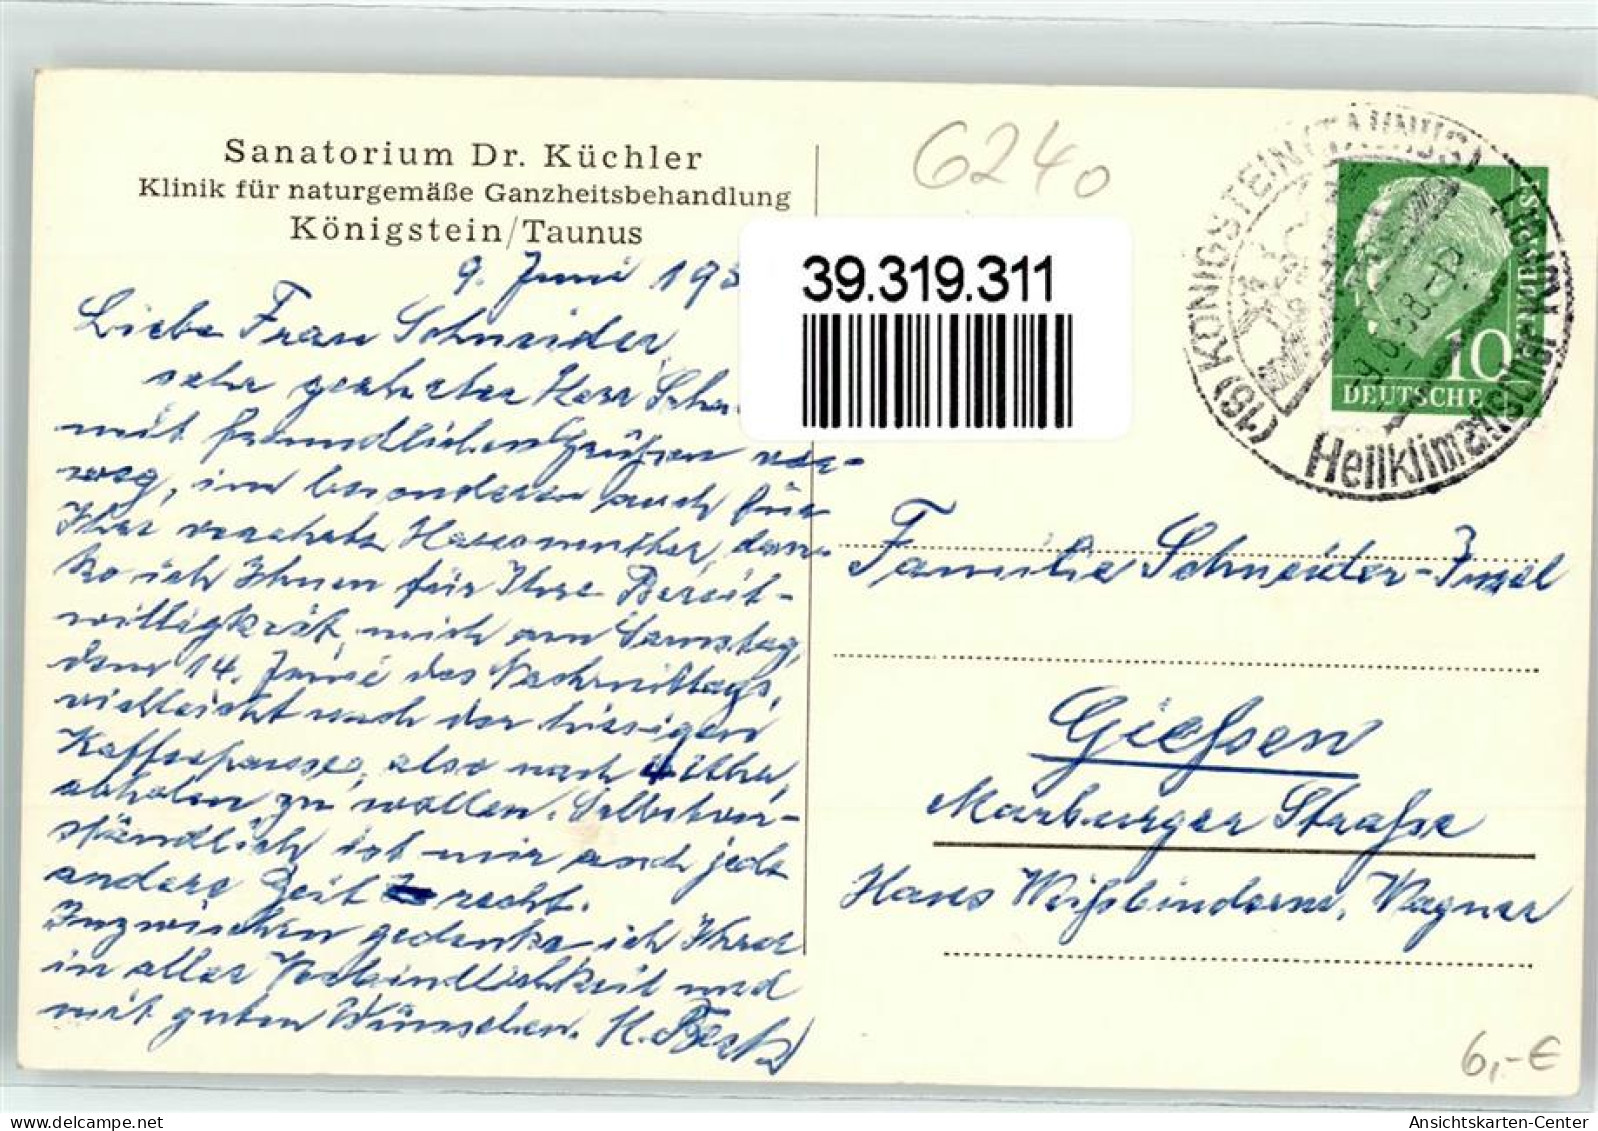 Sanatorium Dr. Küchler
Klinik für naturgemäße Ganzheitsbehandlung
Königstein/Taunus
9. Juni 195
Liebe Frau Schneider
sehr geehrter Herr Schn
mit freundlichen Grüßen vor-
weg, im besonderen auch für
Ihre verehrte Hausmutter, dan-
ke ich Ihnen für Ihre Bereit-
willigkeit, mich am Samstag,
dem 14. Juni des Nachmittags,
vielleicht nach der hiesigen
Kaffeepause, also nach 4 Uhr,
abholen zu wollen. Selbstver-
ständlich ist mir auch jede
andere Zeit recht.
Inzwischen gedenke ich Ihrer
in aller Verbindlichkeit und
mit guten Wünschen. H.
6240
39.319.311
(16) KÖNIGSTEIN (TAUNUS)
Heilklimatischer Kurort
DEUTSCHE
10
Familie Schneider-Insel
Gießen
Marburger Straße
Hans Weißbinderm. Wagner
6,-€
Ansichtskarten-Center